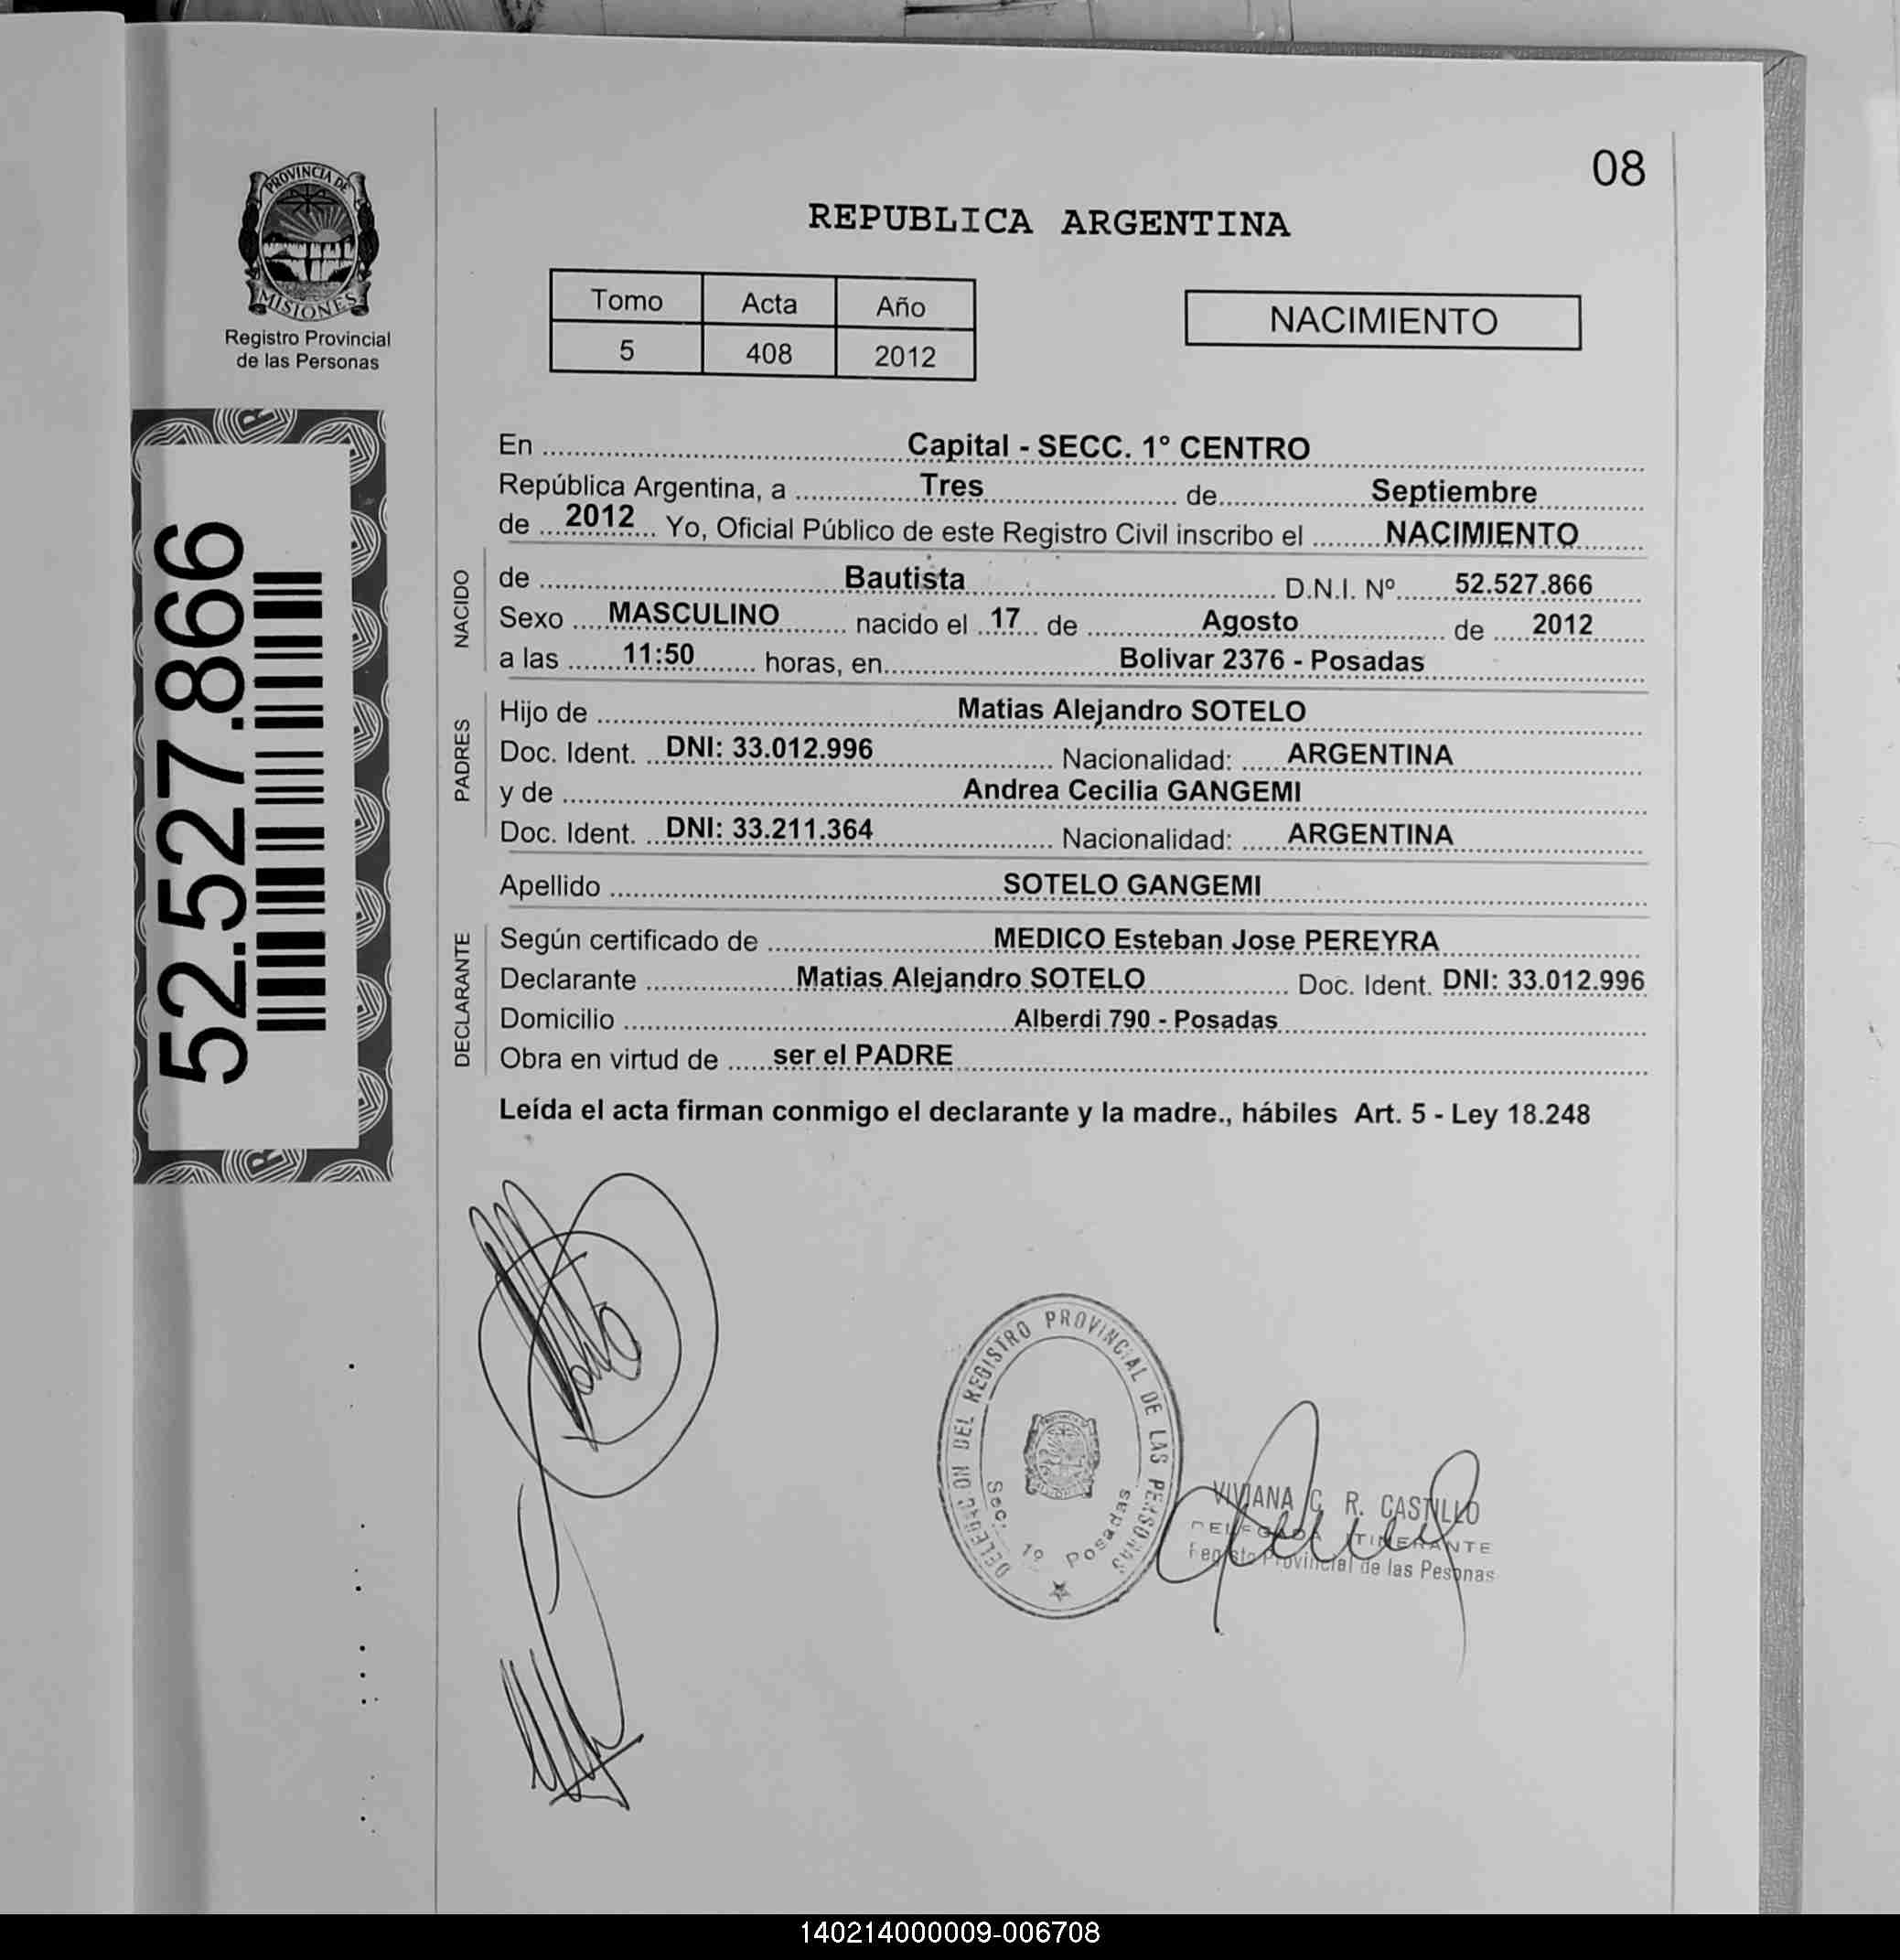 08
PROVINCIA DE
MISIONES
Registro Provincial
de las Personas
REPUBLICA ARGENTINA
Tomo Acta Año
5 408 2012
NACIMIENTO
52.527.866
En Capital - SECC. 1° CENTRO
República Argentina, a Tres de Septiembre
de 2012 Yo, Oficial Público de este Registro Civil inscribo el NACIMIENTO
NACIDO
de Bautista D.N.I. Nº 52.527.866
Sexo MASCULINO nacido el 17 de Agosto de 2012
a las 11:50 horas, en Bolivar 2376 - Posadas
PADRES
Hijo de Matias Alejandro SOTELO
Doc. Ident. DNI: 33.012.996 Nacionalidad: ARGENTINA
y de Andrea Cecilia GANGEMI
Doc. Ident. DNI: 33.211.364 Nacionalidad: ARGENTINA
Apellido SOTELO GANGEMI
DECLARANTE
Según certificado de MEDICO Esteban Jose PEREYRA
Declarante Matias Alejandro SOTELO Doc. Ident. DNI: 33.012.996
Domicilio Alberdi 790 - Posadas
Obra en virtud de ser el PADRE
Leída el acta firman conmigo el declarante y la madre., hábiles Art. 5 - Ley 18.248
DELEGACION DEL REGISTRO PROVINCIAL DE LAS PERSONAS
Sec. 1º Posadas
VIVIANA C. R. CASTILLO
DELEGADA ITINERANTE
Registo Provincial de las Pesonas
140214000009-006708